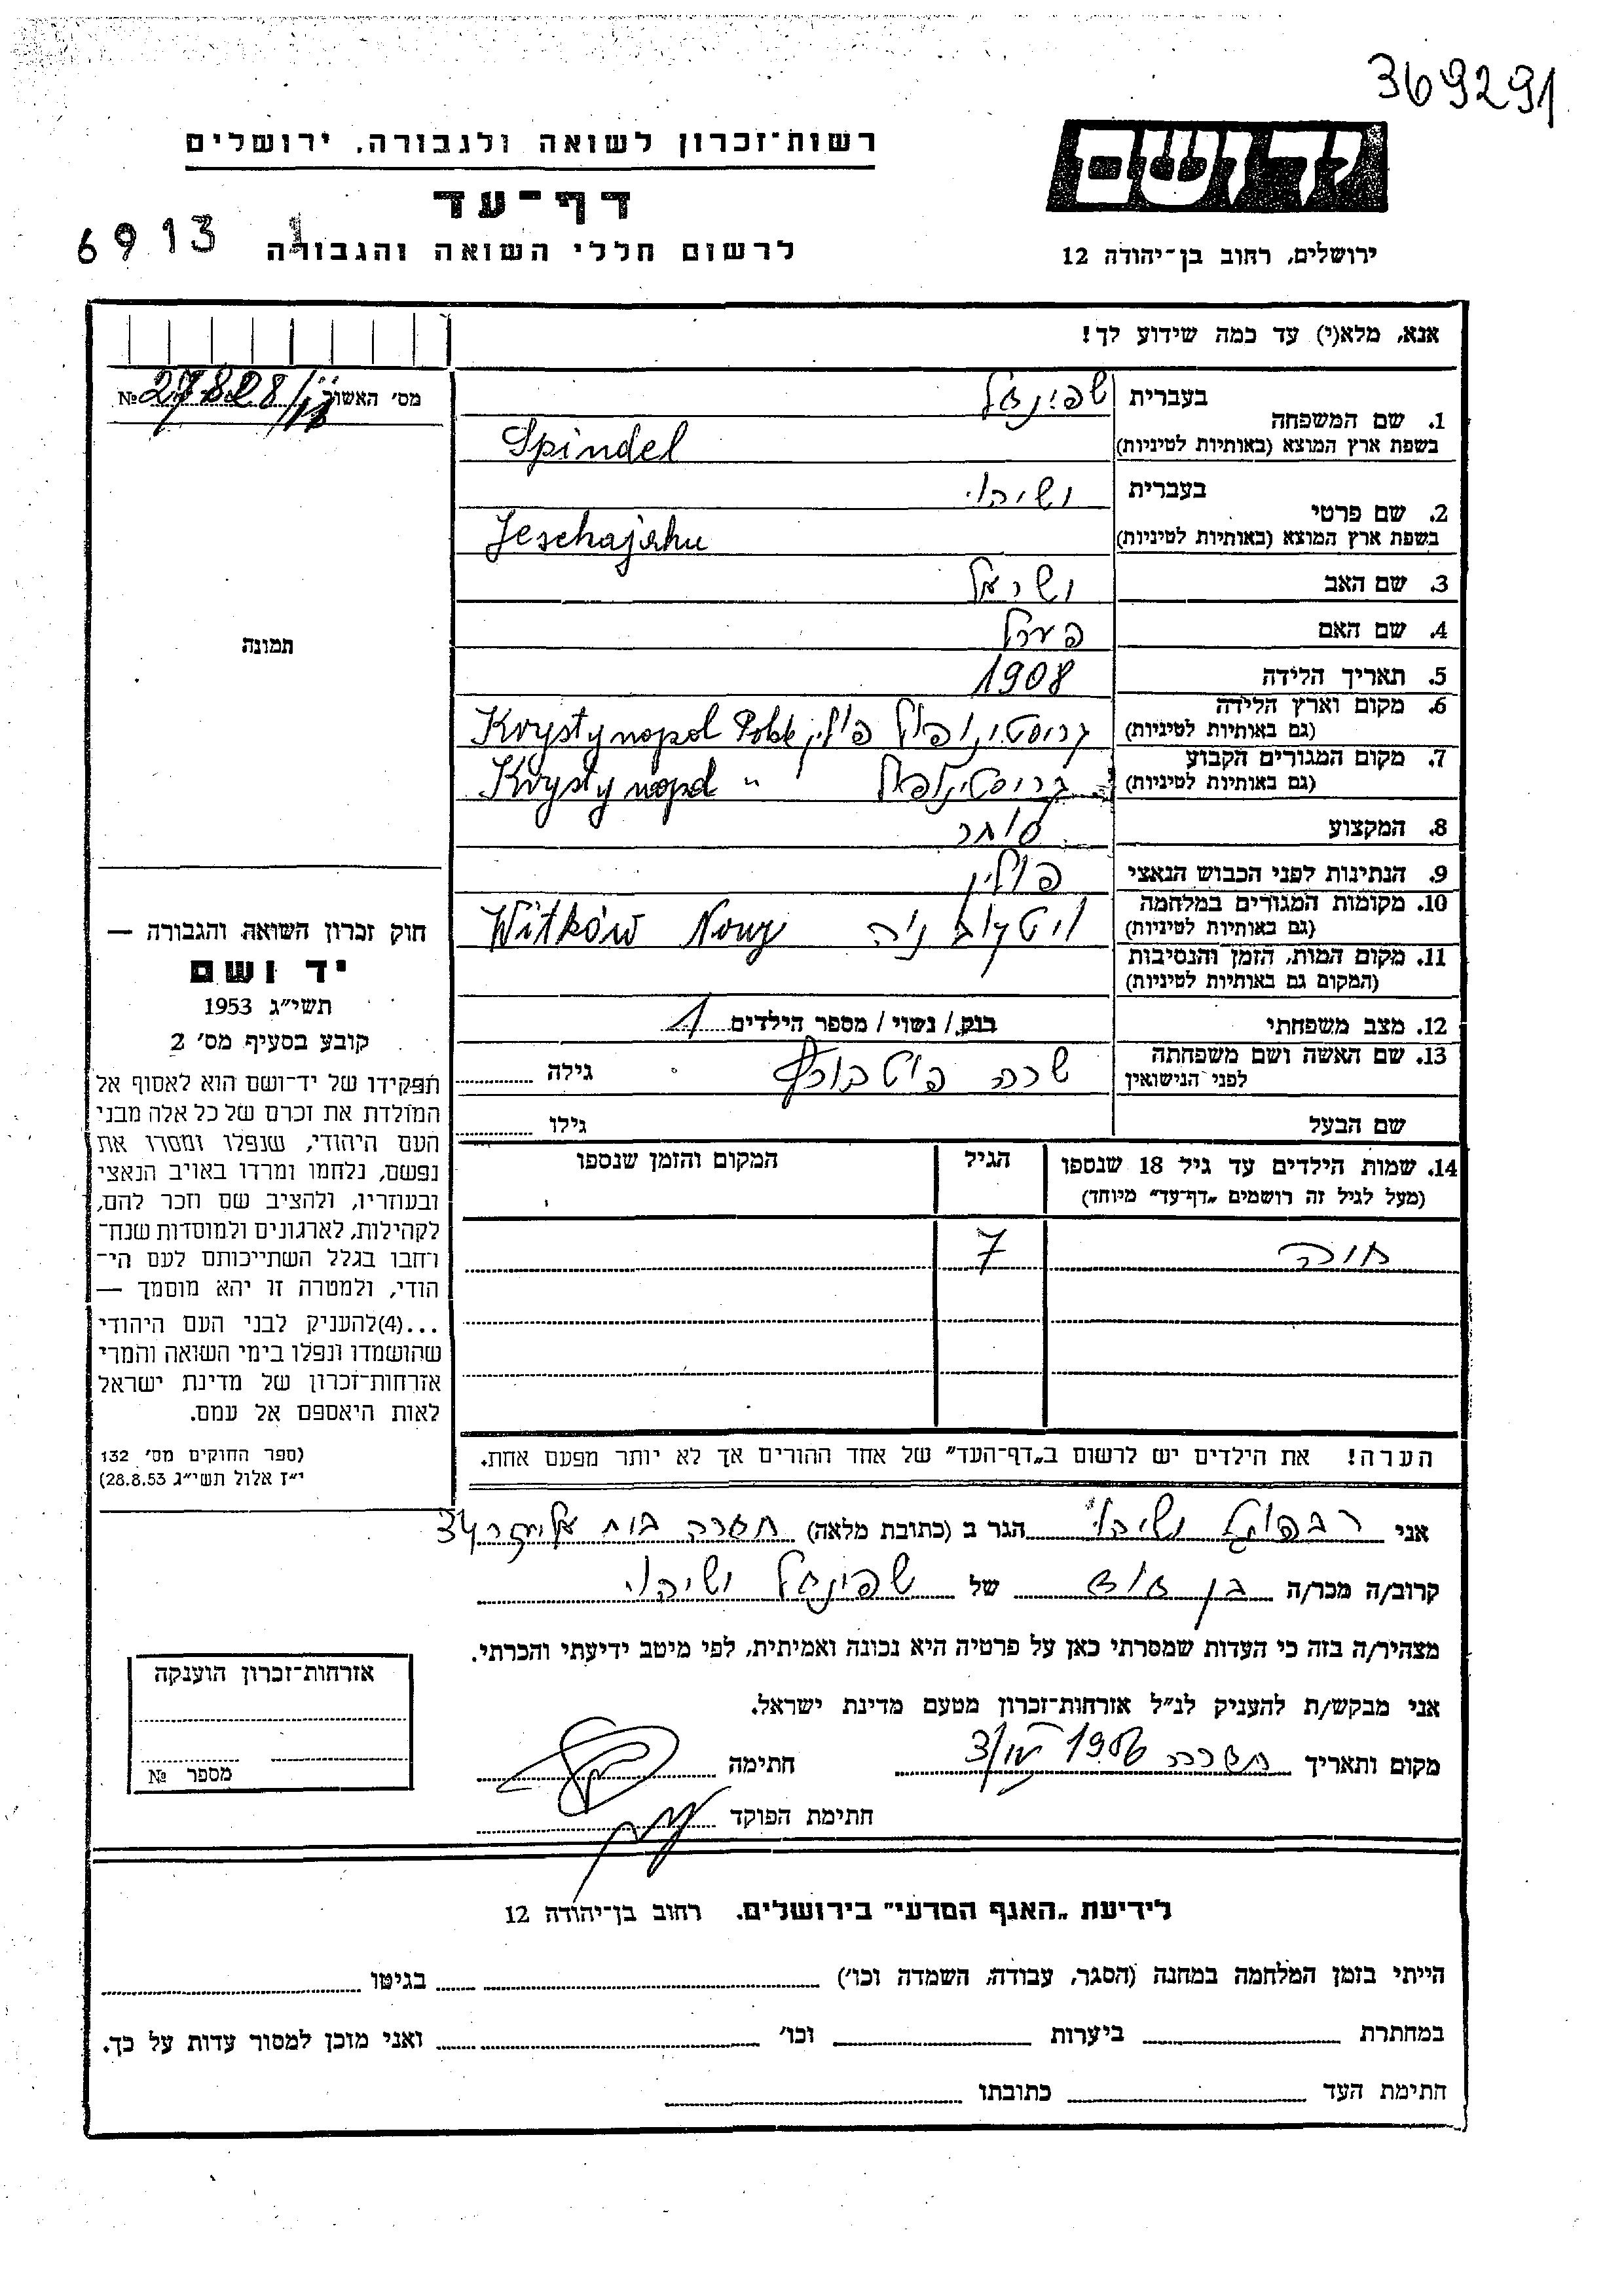 369291
יד ושם
רשות־זכרון לשואה ולגבורה, ירושלים
דף־עד
לרשום חללי השואה והגבורה
6913 1
ירושלים, רחוב בן־יהודה 12
אנא, מלא(י) עד כמה שידוע לך!
מס' האשור № 27828/
1. שם המשפחה בעברית שפינדל
בשפת ארץ המוצא (באותיות לטיניות) Spindel
2. שם פרטי בעברית ישיהו
בשפת ארץ המוצא (באותיות לטיניות) Jeschajahu
3. שם האב ישראל
4. שם האם פערל
5. תאריך הלידה 1908
6. מקום וארץ הלידה (גם באותיות לטיניות) קריסטינופול פולין Krystynopol
7. מקום המגורים הקבוע (גם באותיות לטיניות) Krystynopol "
8. המקצוע סוחר
9. הנתינות לפני הכבוש הנאצי פולין
10. מקומות המגורים במלחמה (גם באותיות לטיניות) Witków Nowy
11. מקום המות, הזמן והנסיבות (המקום גם באותיות לטיניות)
12. מצב משפחתי רווק / נשוי / מספר הילדים 1
13. שם האשה ושם משפחתה לפני הנישואין שרה גילה
שם הבעל גילו
14. שמות הילדים עד גיל 18 שנספו (מעל לגיל זה רושמים „דף־עד" מיוחד) הגיל המקום והזמן שנספו
חוה 7
הערה! את הילדים יש לרשום ב„דף־העד" של אחד ההורים אך לא יותר מפעם אחת.
תמונה
חוק זכרון השואה והגבורה —
יד ושם
תשי"ג 1953
קובע בסעיף מס' 2
תפקידו של יד־ושם הוא לאסוף אל
המולדת את זכרם של כל אלה מבני
העם היהודי, שנפלו ומסרו את
נפשם, נלחמו ומרדו באויב הנאצי
ובעוזריו, ולהציב שם וזכר להם,
לקהילות, לארגונים ולמוסדות שנח־
רחבו בגלל השתייכותם לעם הי־
הודי, ולמטרה זו יהא מוסמך —
...(4)להעניק לבני העם היהודי
שהושמדו ונפלו בימי השואה והמרי
אזרחות־זכרון של מדינת ישראל
לאות היאספם אל עמם.
(ספר החוקים מס' 132
י"ז אלול תשי"ג 28.8.53)
אני ישיהו הגר ב (כתובת מלאה) חדרה 34
קרוב/ה מכר/ה בן דוד של שפינדל ישיהו
מצהיר/ה בזה כי העדות שמסרתי כאן על פרטיה היא נכונה ואמיתית, לפי מיטב ידיעתי והכרתי.
אני מבקש/ת להעניק לנ"ל אזרחות־זכרון מטעם מדינת ישראל.
מקום ותאריך חדרה 1956 חתימה
חתימת הפוקד
אזרחות־זכרון הוענקה
מספר №
לידיעת „האגף המדעי" בירושלים, רחוב בן־יהודה 12
הייתי בזמן המלחמה במחנה (הסגר, עבודה, השמדה וכו') בגיטו
במחתרת ביערות וכו' ואני מוכן למסור עדות על כך.
חתימת העד כתובתו